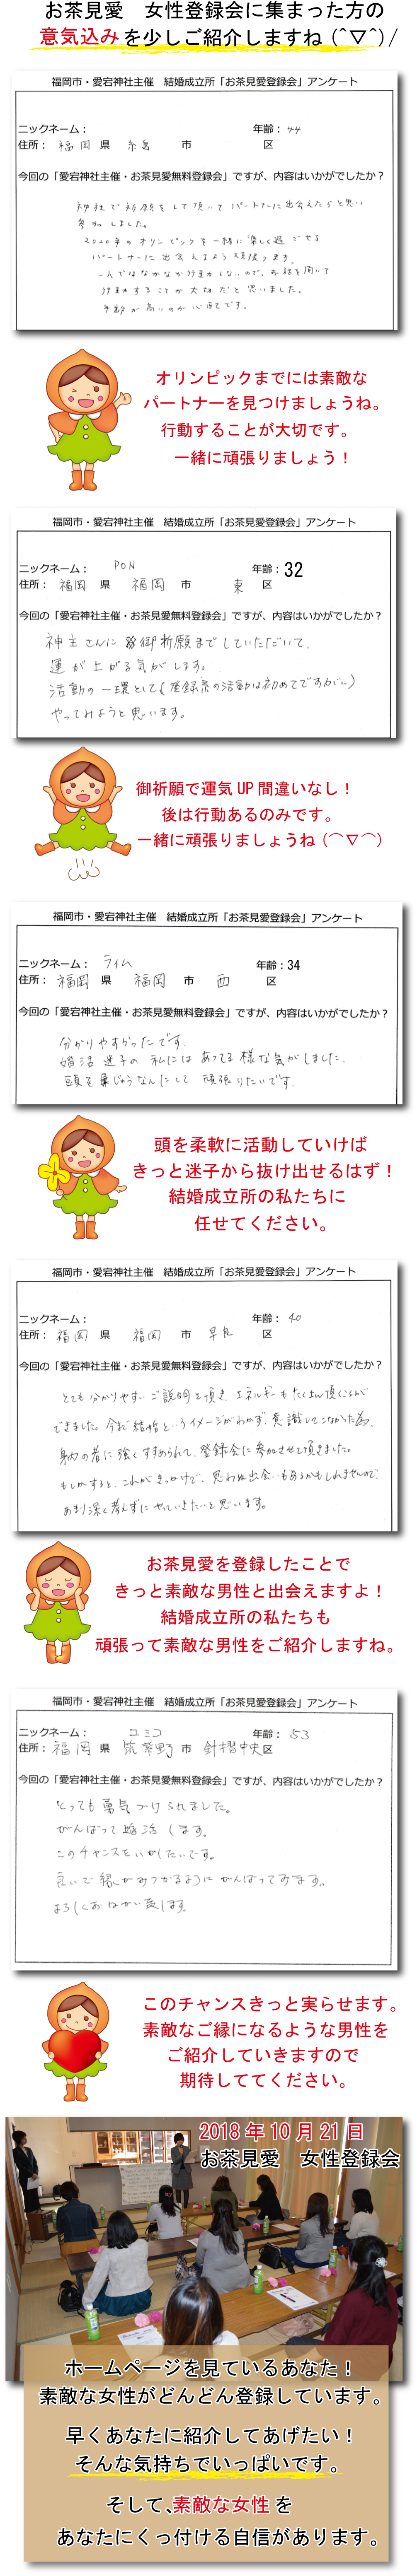 お茶見愛　女性登録会に集まった方の
意気込みを少しご紹介しますね (^▽^)/
福岡市・愛宕神社主催　結婚成立所「お茶見愛登録会」アンケート
ニックネーム：　年齢：44
住所：福岡 県 糸島 市　区
今回の「愛宕神社主催・お茶見愛無料登録会」ですが、内容はいかがでしたか？
神社で祈願をして頂いてパートナーに出会えたらと思い
参加しました。
2020年のオリンピックを一緒に楽しく過ごせる
パートナーに出会えるよう頑張ります。
一人ではなかなか行動しないので、お話を聞いて
行動することが大切だと思いました。
年齢が高いのが心配です。
オリンピックまでには素敵な
パートナーを見つけましょうね。
行動することが大切です。
一緒に頑張りましょう！
福岡市・愛宕神社主催　結婚成立所「お茶見愛登録会」アンケート
ニックネーム：PON　年齢：32
住所：福岡 県 福岡 市 東 区
今回の「愛宕神社主催・お茶見愛無料登録会」ですが、内容はいかがでしたか？
神主さんに御祈願までしていただいて、
運が上がる気がします。
活動の一環として(登録系の活動は初めてですが…)
やってみようと思います。
御祈願で運気 UP 間違いなし！
後は行動あるのみです。
一緒に頑張りましょうね (⌒▽⌒)
福岡市・愛宕神社主催　結婚成立所「お茶見愛登録会」アンケート
ニックネーム：ライム　年齢：34
住所：福岡 県 福岡 市 西 区
今回の「愛宕神社主催・お茶見愛無料登録会」ですが、内容はいかがでしたか？
分かりやすかったです。
婚活迷子の私にはあってる様な気がしました。
頭をじゅうなんにして頑張りたいです。
頭を柔軟に活動していけば
きっと迷子から抜け出せるはず！
結婚成立所の私たちに
任せてください。
福岡市・愛宕神社主催　結婚成立所「お茶見愛登録会」アンケート
ニックネーム：　年齢：40
住所：福岡 県 福岡 市 早良 区
今回の「愛宕神社主催・お茶見愛無料登録会」ですが、内容はいかがでしたか？
とても分かりやすいご説明を頂き、エネルギーもたくさん頂くことが
できました。今まで結婚というイメージがわかず、意識してこなかった為、
身内の者に強くすすめられて、登録会に参加させて頂きました。
もしかすると、これがきっかけで、思わぬ出会いもあるかもしれませんので、
あまり深く考えずにやっていきたいと思います。
お茶見愛を登録したことで
きっと素敵な男性と出会えますよ！
結婚成立所の私たちも
頑張って素敵な男性をご紹介しますね。
福岡市・愛宕神社主催　結婚成立所「お茶見愛登録会」アンケート
ニックネーム：ユミコ　年齢：53
住所：福岡 県 筑紫野 市 針摺中央 区
今回の「愛宕神社主催・お茶見愛無料登録会」ですが、内容はいかがでしたか？
とっても勇気づけられました。
がんばって婚活します。
このチャンスをいかしたいです。
良いご縁がみつかるようにがんばってみます。
よろしくおねがい致します。
このチャンスきっと実らせます。
素敵なご縁になるような男性を
ご紹介していきますので
期待しててください。
2018 年 10 月 21 日
お茶見愛　女性登録会
ホームページを見ているあなた！
素敵な女性がどんどん登録しています。
早くあなたに紹介してあげたい！
そんな気持ちでいっぱいです。
そして、素敵な女性を
あなたにくっ付ける自信があります。